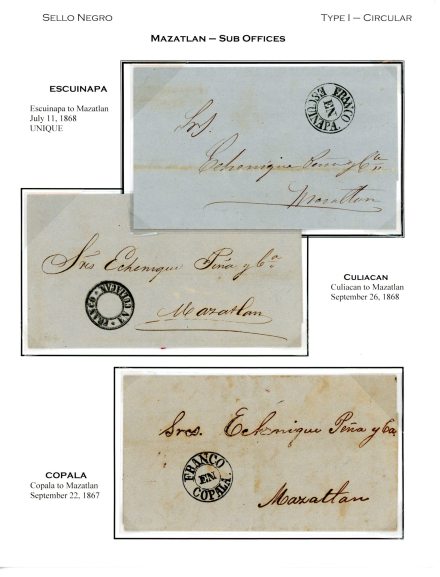 SELLO NEGRO
TYPE I – CIRCULAR
MAZATLAN – SUB OFFICES
ESCUINAPA
Escuinapa to Mazatlan
July 11, 1868
UNIQUE
FRANCO
EN
ESCUINAPA.
Srs.
Echenique Peña y Ca
Mazatlan
Sres Echenique Peña y Ca
Mazatlan
FRANCO EN CULIACAN
CULIACAN
Culiacan to Mazatlan
September 26, 1868
Sres. Echenique Peña y Ca
FRANCO
EN
COPALA
Mazatlan
COPALA
Copala to Mazatlan
September 22, 1867